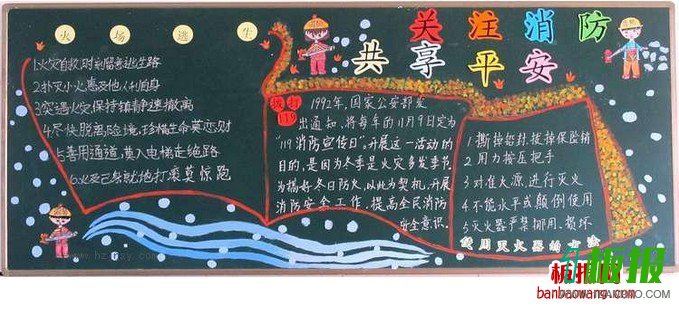 关注消防
共享平安
火场逃生
1.火灾自救,时刻留意逃生路
2.扑灭小火,惠及他人利自身
3.突遇火灾,保持镇静速撤离
4.尽快脱离险境,珍惜生命莫恋财
5.善用通道,莫入电梯走绝路
6.火及己身,就地打滚莫惊跑
拨打
119
1992年,国家公安部发
出通知,将每年的11月9日定为
"119消防宣传日"。开展这一活动的
目的,是因为冬季是火灾多发季节
为搞好冬日防火,以此为契机,开展
消防安全工作,提高全民消防
安全意识。
1.撕掉铅封,拔掉保险销
2.用力按压把手
3.对准火源,进行灭火
4.不能水平或颠倒使用
5.灭火器严禁挪用、损坏
使用灭火器的方法
板报网
banbaowang.com
板报